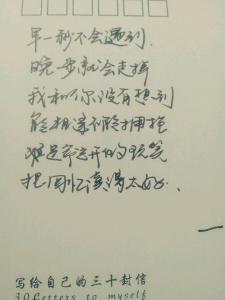 早一秒不会遇到.
晚一步就会走掉
我和你没有想到
能相遇不能拥抱
难道命运开的玩笑
把回忆演得太好.
写给自己的三十封信
30 Letters to myself